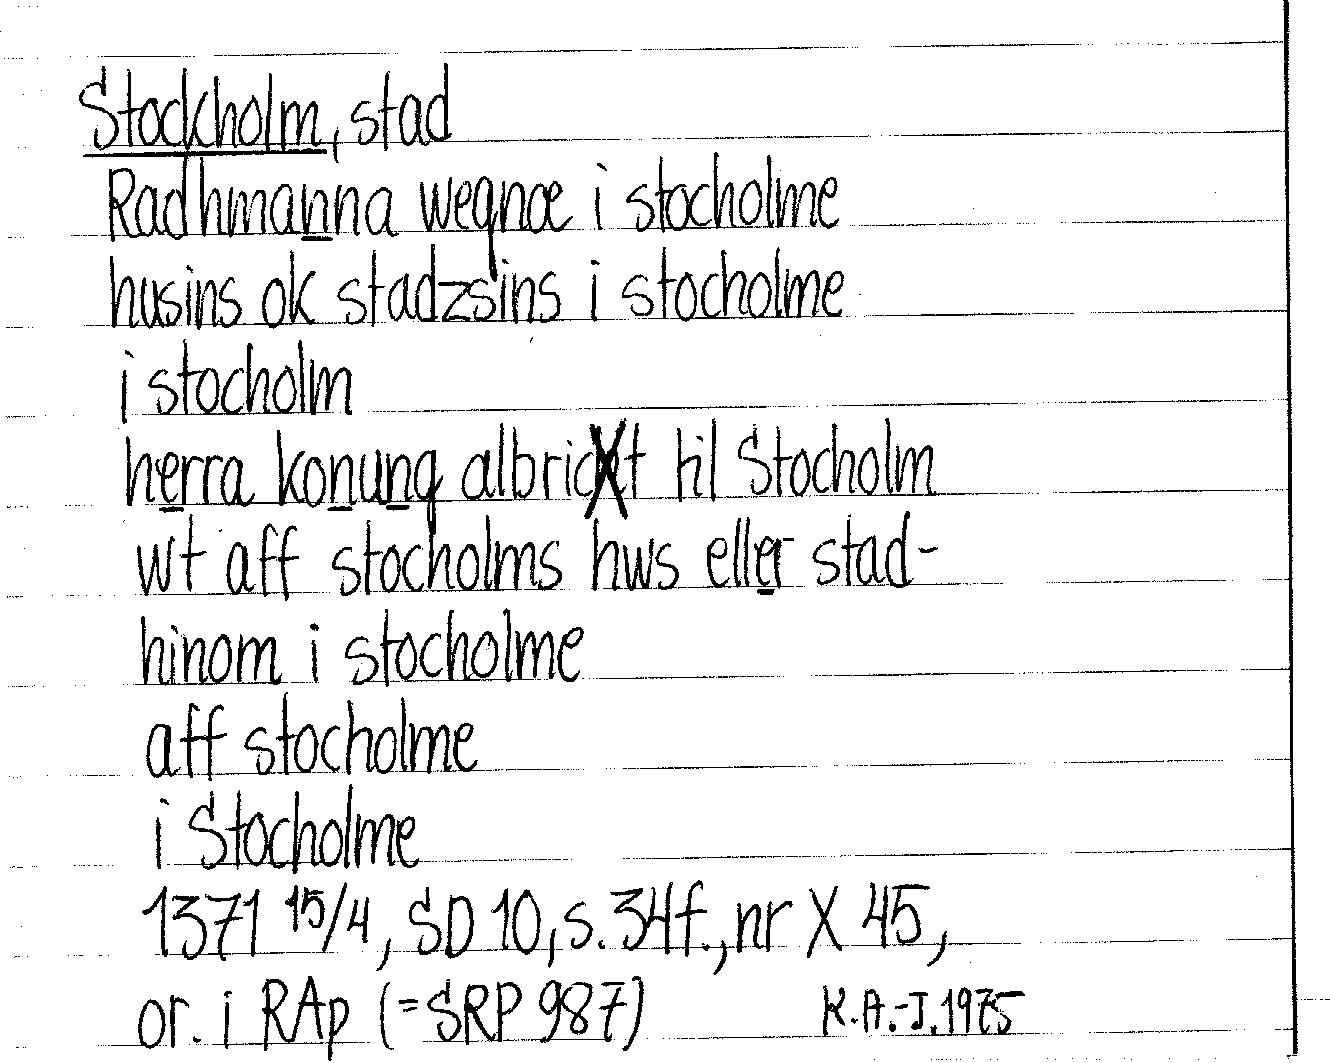 Stockholm, stad
Radhmanna wegnæ i stocholme
husins ok stadzsins i stocholme
i stocholm
herra konung albricXt til Stocholm
wt aff stocholms hws eller stad-
hinom i stocholme
aff stocholme
i Stocholme
1371 15/4, SD 10, s. 34 f., nr X 45,
or. i RAp (=SRP 987) K.A.-J. 1975